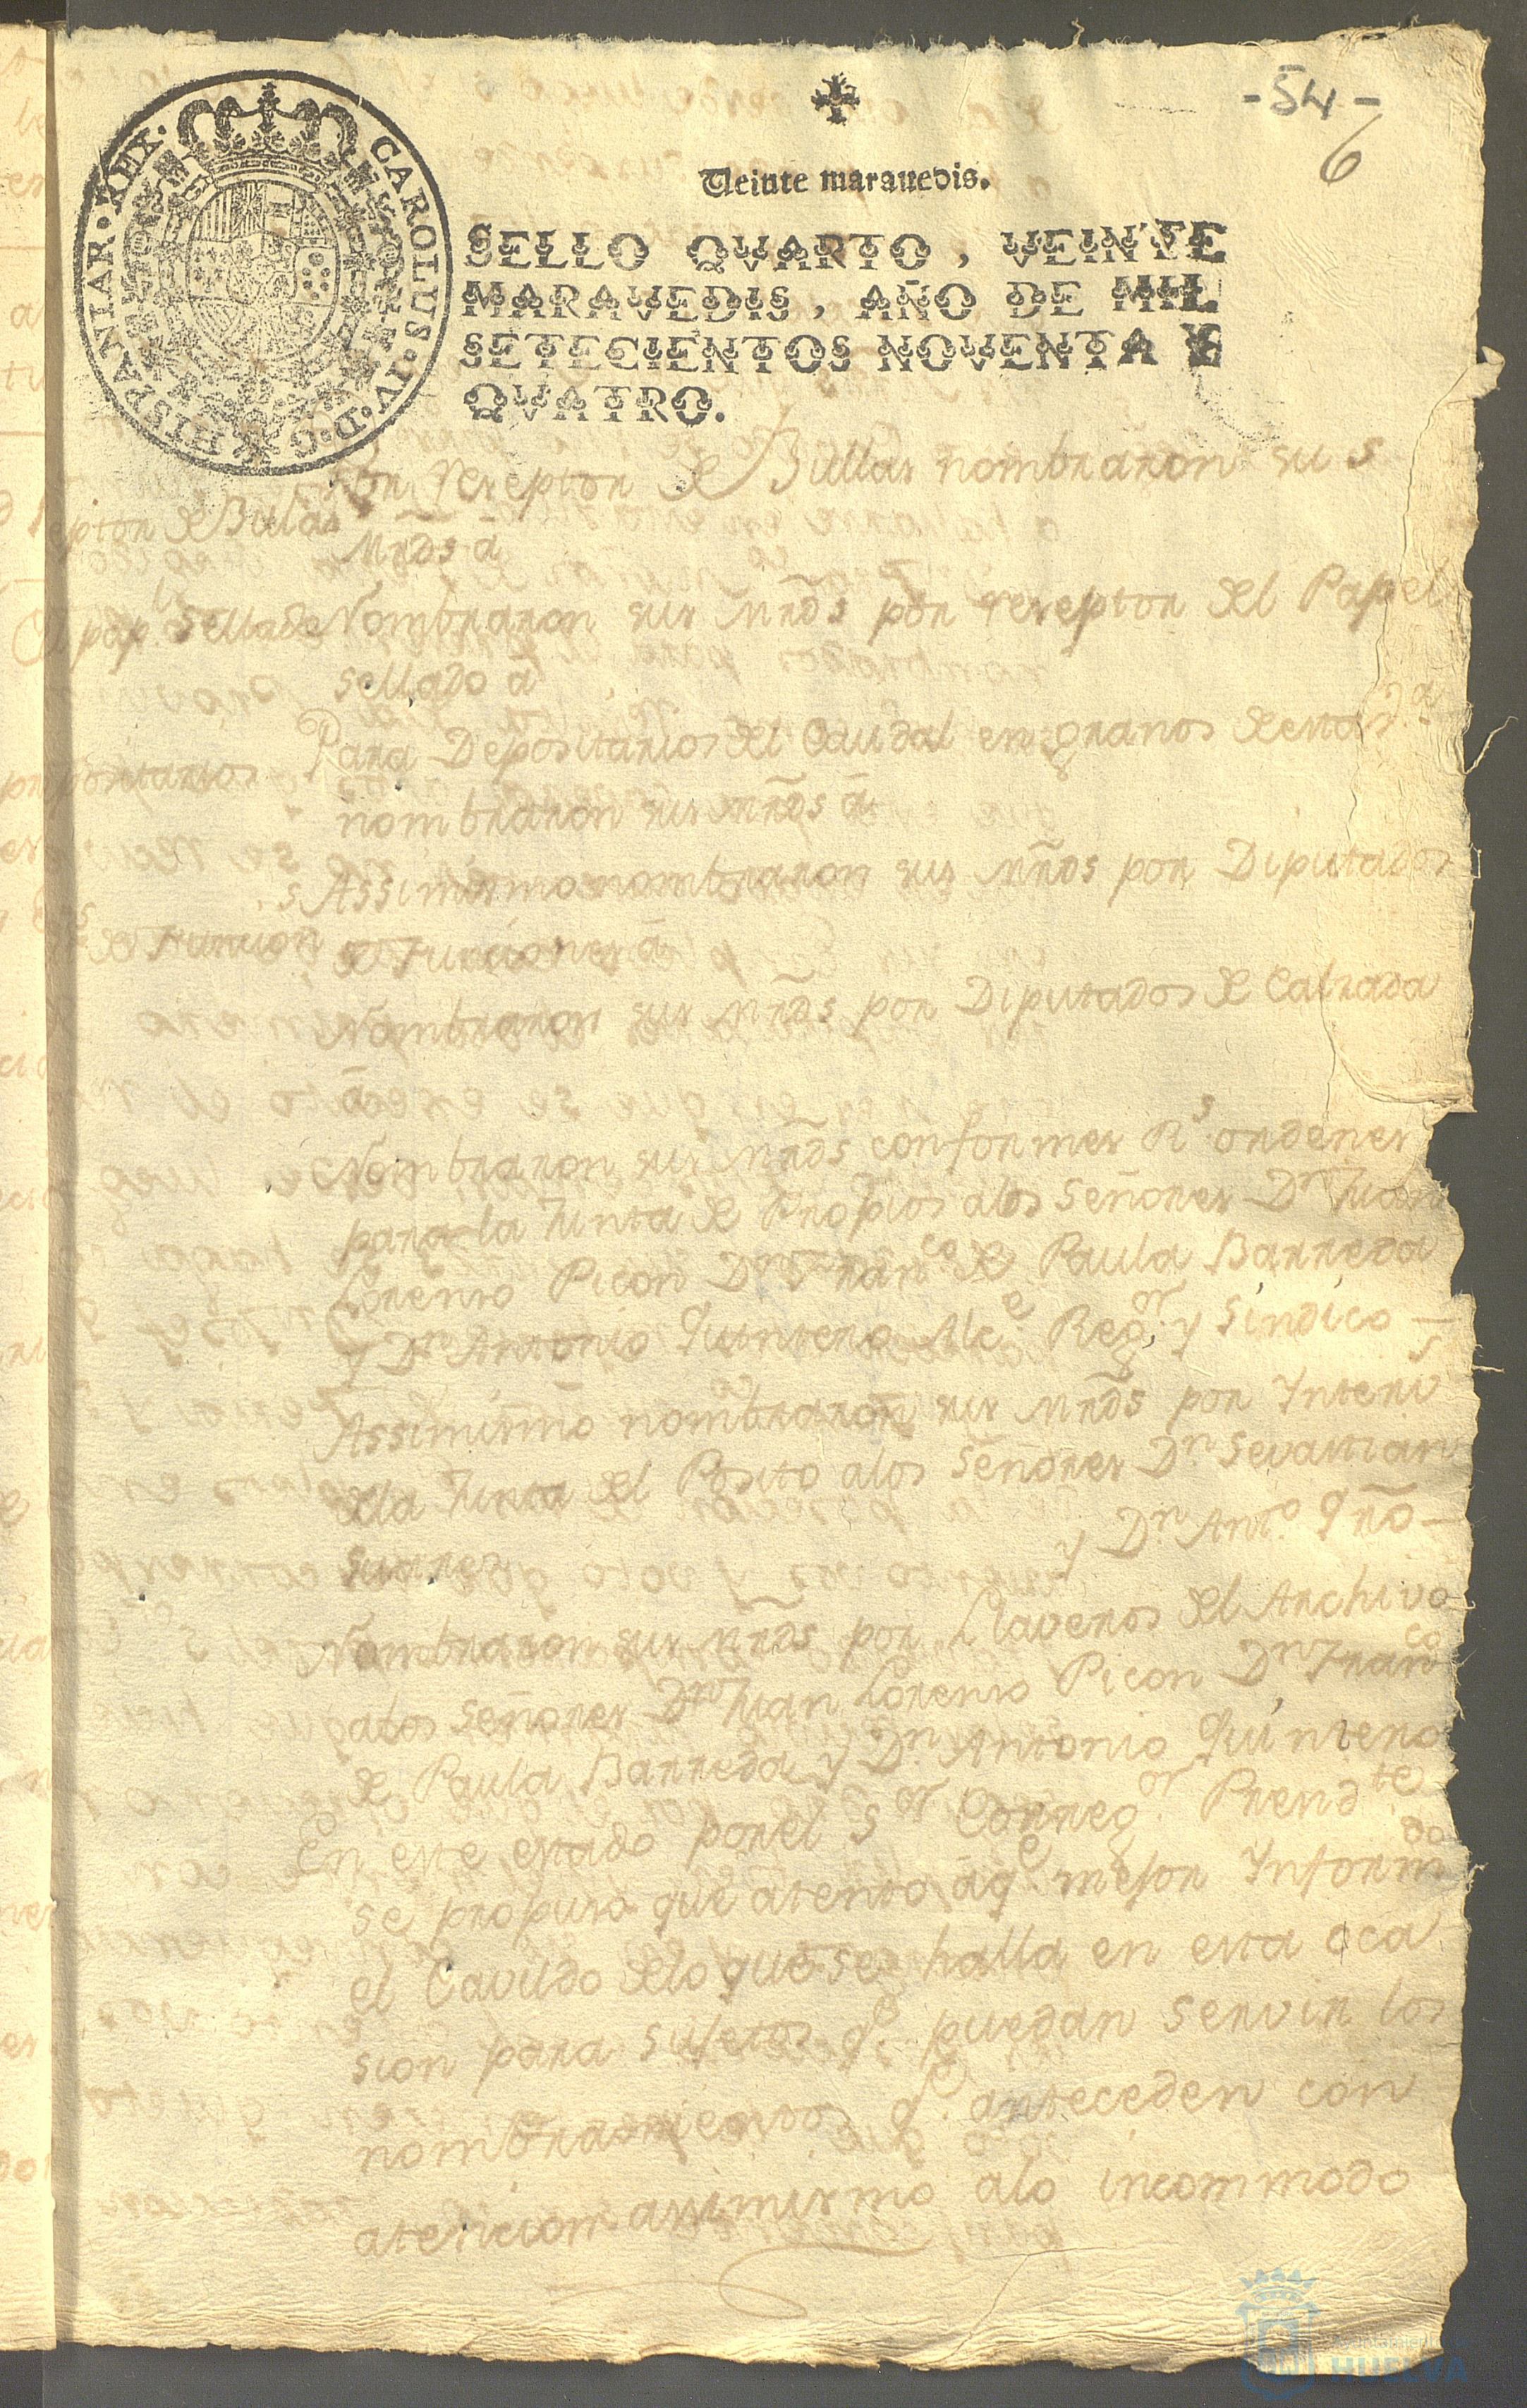 -54-
6
CAROLUS·IV·D·G·HISPANIAR·REX·
Veinte maravedis.
SELLO QVARTO, VEINTE
MARAVEDIS, AÑO DE MIL
SETECIENTOS NOVENTA Y
QVATRO.
Por rreseptor de Bullas nombraron sus
eptor de Bulas
Mrds á
el pap.l Sellado
Nombraron sus Mrds por rreseptor del Papel
sellado á
Para Depositarios del Caudal en granos de esta
positarios
nombraron sus mrds á
Assimismo nombraron sus Mrds por Diputados
de Funcion
de Funciones á
Nombraron sus Mrds por Diputados de Calzada
á
Nombraron sus Mrds conformes Rs ordenes
para la Junta de Propios alos Señores Dn Juan
Lorenzo Picon Dn Franco de Paula Barreda
y Dn Antonio Quintero Alce Regor y Sindico
Assimismo nombraron sus Mrds por Interv
dela Junta del Posito alos Señores Dn Sevastian
Suares y Dn Anto Qño
Nombraron sus Mrds por Llaveros del Archivo
alos Señores Dn Juan Lorenzo Picon Dn Franco
de Paula Barreda y Dn Antonio Quintero
En este estado por el Sor Corregor Presdte
se propuso que atento áqe mejor Informdo
el Cavildo delo que se halla en esta oca
sion para sujetos qe puedan servir los
nombramientos qe anteceden con
atencion assimismo alo incommodo
HUELVA